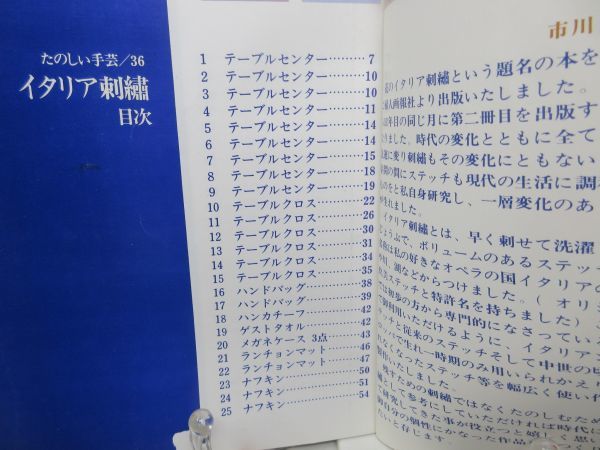 たのしい手芸/36
イタリア刺繡
目次
1 テーブルセンター………7
2 テーブルセンター………10
3 テーブルセンター………10
4 テーブルセンター………11
5 テーブルセンター………14
6 テーブルセンター………14
7 テーブルセンター………15
8 テーブルセンター………18
9 テーブルセンター………19
10 テーブルクロス…………22
11 テーブルクロス…………26
12 テーブルクロス…………30
13 テーブルクロス…………31
14 テーブルクロス…………35
15 テーブルクロス…………35
16 ハンドバッグ……………38
17 ハンドバッグ……………39
18 ハンカチーフ……………42
19 ゲストタオル……………43
20 メガネケース 3点………43
21 ランチョンマット………46
22 ランチョンマット………47
23 ナフキン…………………50
24 ナフキン…………………51
25 ナフキン…………………54
市川
イタリア刺繡という題名の本を
婦人画報社より出版いたしました。
年目の同じ月に第二冊目を出版す
ました。時代の変化とともに全て
に変り刺繡もその変化にともない
間にステッチも現代の生活に調
ものをと私自身研究し、一層変化のあ
まれました。
イタリア刺繡とは、早く刺せて洗濯
じょうぶで、ボリュームのあるステッ
は私の好きなオペラの国イタリアの
湖などからつけました。(オリ
ステッチと特許名を持ちました)
は初歩の方から専門的になさってい
御利用いただけるように、イタリアン
チと従来のステッチそして中世の
パで生れ一時期のみ用いられかえり
なくなったステッチ等を幅広く使い
いたしました。
残すための刺繡ではなくたのしむため
として参考にしていただければ
研究してきた事が役立つと嬉しく思い
御自分の個性にかなった作品
たいと存じます。